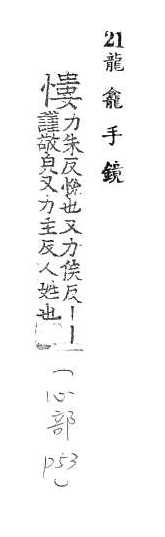 21龍龕手鏡
慺力朱反悅也又力侯反丨丨
謹敬皃又力主反人姓也
（心部
p53）